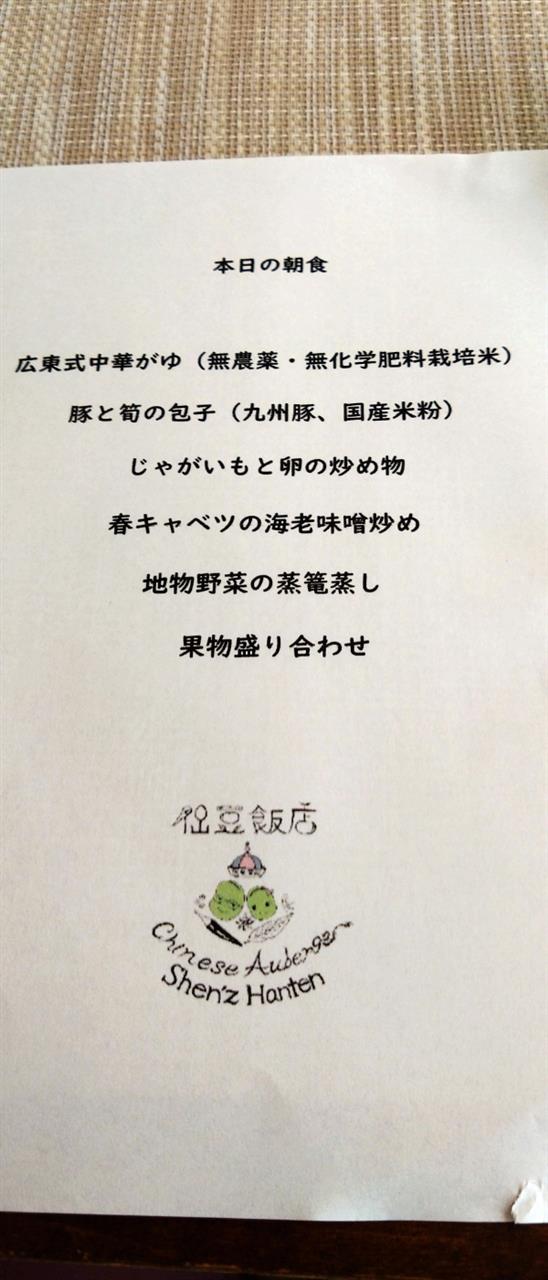 本日の朝食
広東式中華がゆ（無農薬・無化学肥料栽培米）
豚と筍の包子（九州豚、国産米粉）
じゃがいもと卵の炒め物
春キャベツの海老味噌炒め
地物野菜の蒸篭蒸し
果物盛り合わせ
豆飯店
Chinese
Shen'z Hanten